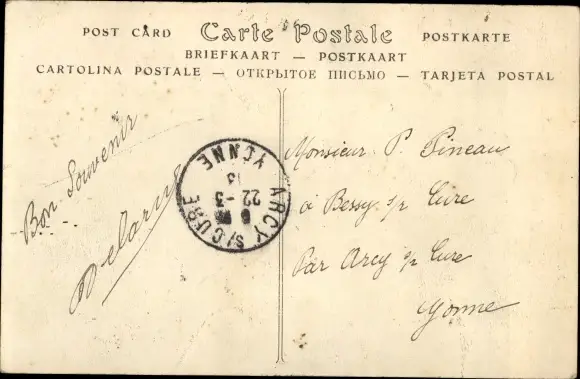 POST CARD Carte Postale POSTKARTE
BRIEFKAART — POSTKAART
CARTOLINA POSTALE — ОТКРЫТОЕ ПИСЬМО — TARJETA POSTAL
Bon Souvenir
Delarue
ARCY S/CURE
22 - 3
13
YONNE
Monsieur P. Pineau
à Bessy s/r Cure
Par Arcy s/r Cure
Yonne